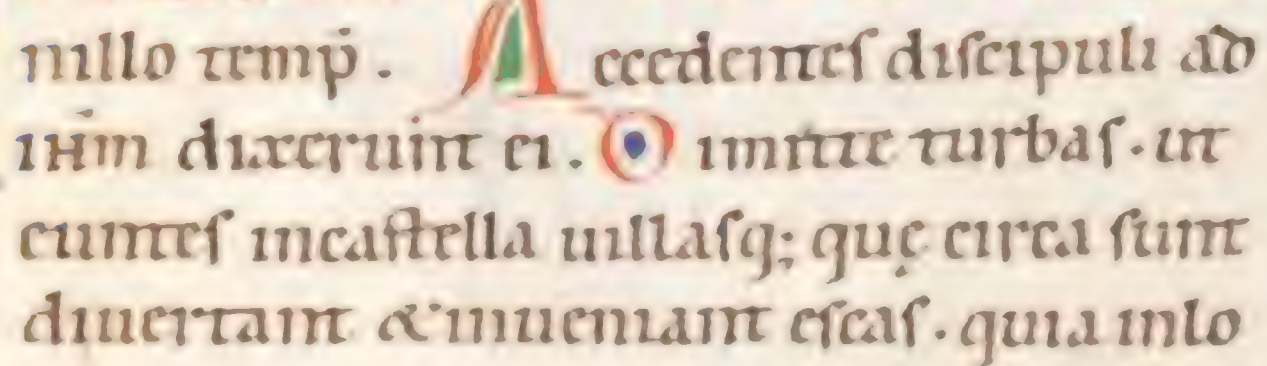 nillo temp̄. Accedentes discipuli ad
ihm̄ dixerunt ei. Dimitte turbas. ut
euntes incastella uillasq; quę circa sunt
diuertant & inueniant escas. quia inlo